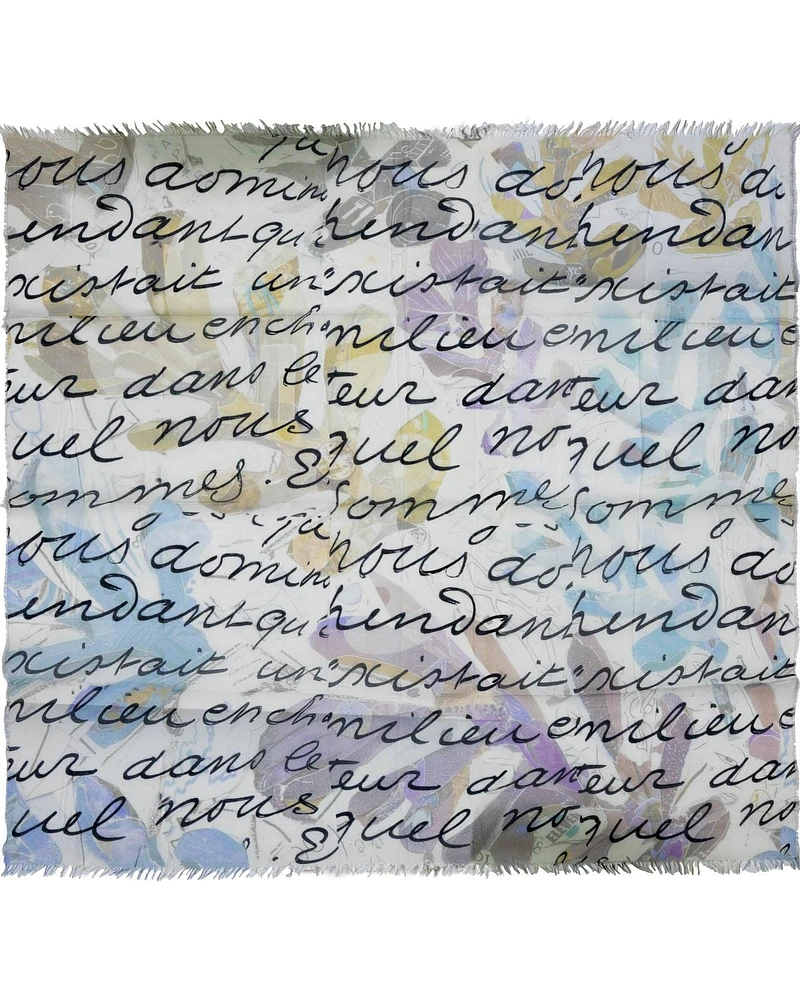 ous domin nous do nous do
endant qu hendan hendan
xistait un xistait xistait
milieu ench milieu e milieu e
eur dans le teur dan eur dan
quel nous quel no quel no
sommes. E Somme Somme
ous domin nous do nous do
endant qu hendan hendan
xistait un xistait xistait
milieu ench milieu e milieu e
eur dans le teur dan eur dan
quel nous E quel no quel no